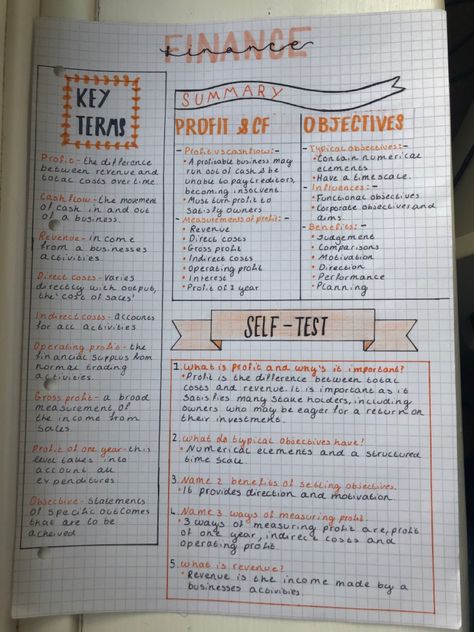 FINANCE
finance
KEY
TERMS
Profit - the difference
between revenue and
total costs over time
Cash flow - the movement
of cash in and out
of a business.
Revenue - in come
from a businesses
activities
Direct costs - varies
directly with output,
the 'cost of sales'
Indirect costs - accounts
for all activities
Operating profit - the
financial surplus from
normal trading
activities.
Gross profit - a broad
measurement of
the income from
sales
Profit of one year - this
level takes into
account all
expenditures
Objective - statements
of specific outcomes
that are to be
acheived
SUMMARY
PROFIT & CF
- Profit vs cashflow:-
• A profitable business may
run out of cash & be
unable to pay creditors,
becoming insolvent
• Must turn profit to
satisfy owners
- Measurements of profit:-
• Revenue
• Direct costs
• Gross profit
• Indirect costs
• Operating profit
• Interest
• Profit of 1 year
OBJECTIVES
- Typical objectives:-
• Contain numerical
elements
• Have a timescale.
- Influences:-
• Functional objectives
• Corporate objectives and
aims
- Benefits:-
• Judgement
• Comparisons
• Motivation
• Direction
• Performance
• Planning
SELF-TEST
1. What is profit and why's it important?
• Profit is the difference between total
costs and revenue. It is important as it
satisfies many stake holders, including
owners who may be eager for a return on
their investment.
2. What do typical objectives have?
• Numerical elements and a structured
time scale.
3. Name 2 benefits of setting objectives.
• It provides direction and motivation.
4. Name 3 ways of measuring profit
• 3 ways of measuring profit are, profit
of one year, indirect costs and
operating profit.
5. What is revenue?
• Revenue is the income made by a
businesses activities.